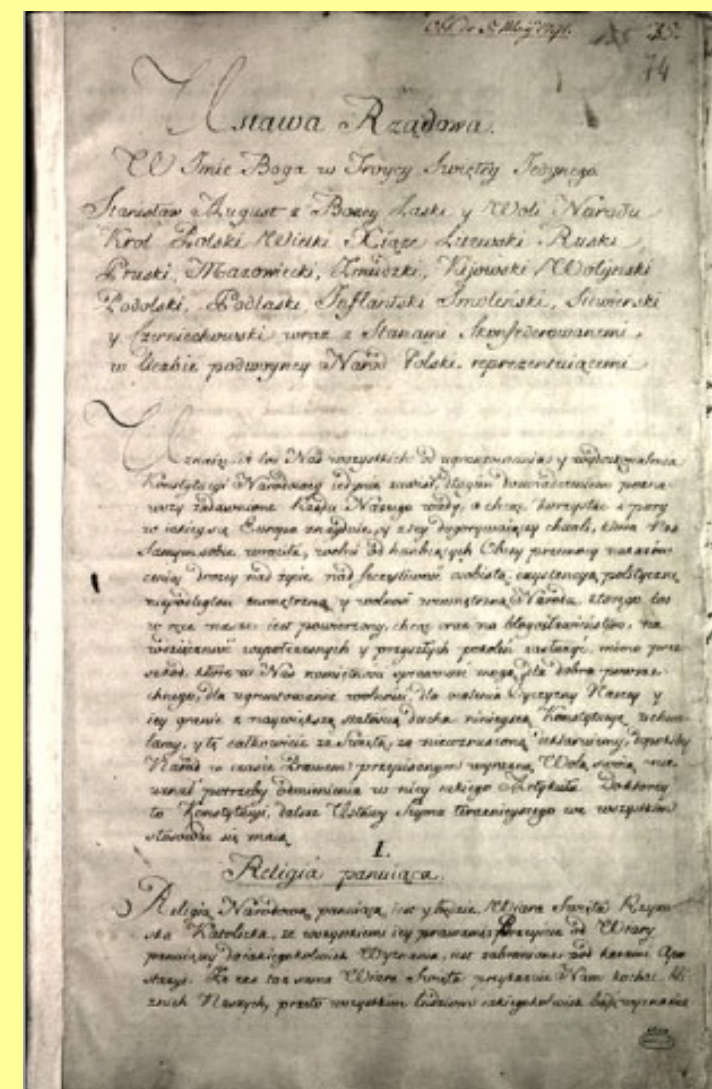 74
Ustawa Rządowa.
W Imie Boga w Troycy Swiętey Jedynego
Stanisław August z Bozey Łaski y Woli Narodu
Krol Polski Wielki Xiąże Litewski Ruski
Pruski, Mazowiecki, Zmudzki, Kijowski Wołynski
Podolski, Podlaski, Inflantski Smoleński, Siewierski
y Czerniechowski wraz z Stanami Skonfederowanemi,
w liczbie podwoyney Naród Polski reprezentuiącemi
Uznaiąc, iż los Nas wszystkich od ugruntowania y wydoskonalenia
Konstytucyi Narodowey iedynie zawisł, długim doswiadczeniem pozna-
wszy zadawnione Rządu Naszego wady, a chcąc korzystać z pory
w iakiey się Europa znayduie, y z tey dogorywaiącey chwili, która Nas
samym sobie wrociła, wolni od hanbiących Obcey przemocy nakazów
ceniąc drozey nad życie, nad szczęśliwość osobistą, exystencyą polityczną
niepodległość zewnętrzną y wolność wewnętrzną Narodu, ktorego los
w ręce nasze iest powierzony, chcąc oraz na błogosławieństwo, na
wdzięczność współczesnych y przyszłych pokoleń zasłużyć, mimo prze-
szkod, które w Nas namiętności sprawować mogą, dla dobra powsze-
chnego, dla ugruntowania wolności, dla ocalenia Oyczyzny Naszey y
iey granic z naywiększą stałością ducha ninieyszą Konstytucyę uchwa-
lamy, y tę całkowicie za Swiętą, za niewzruszoną deklaruiemy, dopokiby
Naród w czasie Prawem przepisanym wyraźną Wolą swoią nie
uznał potrzeby odmienienia w niey iakiego Artykułu. Do ktorey
to Konstytucyi, dalsze Ustawy Seymu teraznieyszego we wszystkim
stosować się maią
I.
Religia panuiąca.
Religią Narodową panuiącą iest y będzie Wiara Swięta Rzym-
ska Katolicka, ze wszystkiemi iey prawami. Przeyście od Wiary
panuiącey do iakiegokolwiek Wyznania, iest zabronione pod karami Apo-
stazyi. Ze zaś taż sama Wiara Swięta przykazuie Nam kochać bli-
znich Naszych, przeto wszystkim ludziom iakiegokolwiek bądź wyznania